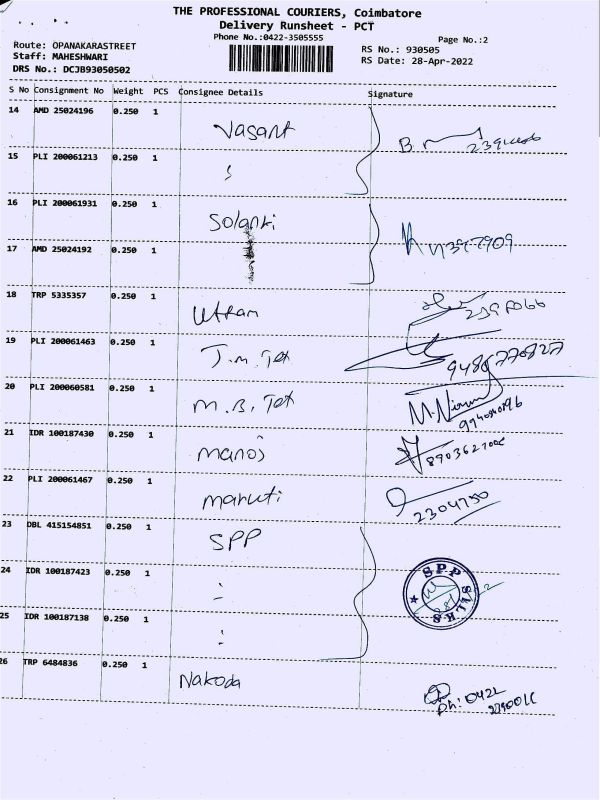 THE PROFESSIONAL COURIERS, Coimbatore
Delivery Runsheet - PCT
Phone No.:0422-3505555
Page No.:2
Route: OPANAKARASTREET
Staff: MAHESHWARI
DRS No.: DCJB93050502
RS No.: 930505
RS Date: 28-Apr-2022
S No Consignment No Weight PCS Consignee Details Signature
14 AMD 25024196 0.250 1
Vasant
15 PLI 200061213 0.250 1
16 PLI 200061931 0.250 1
Solanki
17 AMD 25024192 0.250 1
18 TRP 5335357 0.250 1
Uttam
19 PLI 200061463 0.250 1
J.m. Tex 9486770827
20 PLI 200060581 0.250 1
M.B. Tex
21 IDR 100187430 0.250 1
manoj
22 PLI 200061467 0.250 1
maruti 2304750
23 DBL 415154851 0.250 1
SPP
24 IDR 100187423 0.250 1
SPP SILKS
25 IDR 100187138 0.250 1
26 TRP 6484836 0.250 1
Nakoda
Ph: 0422